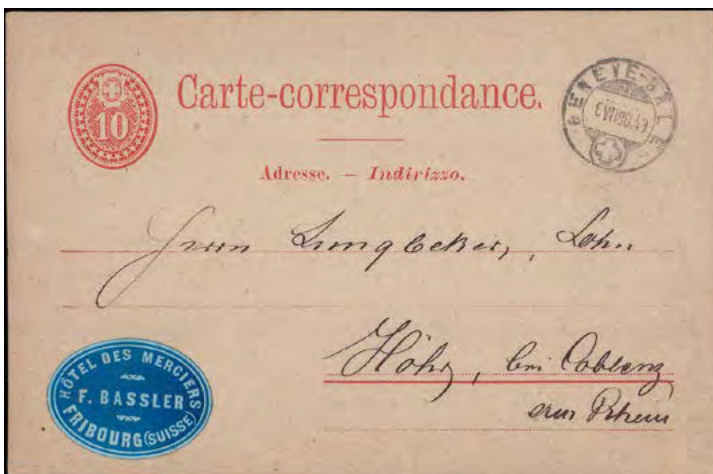 10
Carte-correspondance.
GENEVE-BALE
Adresse. — Indirizzo.
Herrn
Höhr, bei Coblenz
am Rhein
HÔTEL DES MERCIERS
F. BASSLER
FRIBOURG (SUISSE)